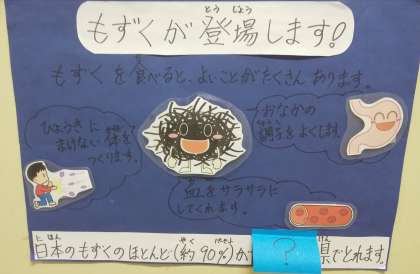 もずくが登場します!
もずくを食べると、よいことがたくさんあります。
びょうきに
まけない体を
つくります。
おなかの
調子をよくします
血をサラサラに
してくれます。
日本のもずくのほとんど(約90%)が
?
県でとれます。